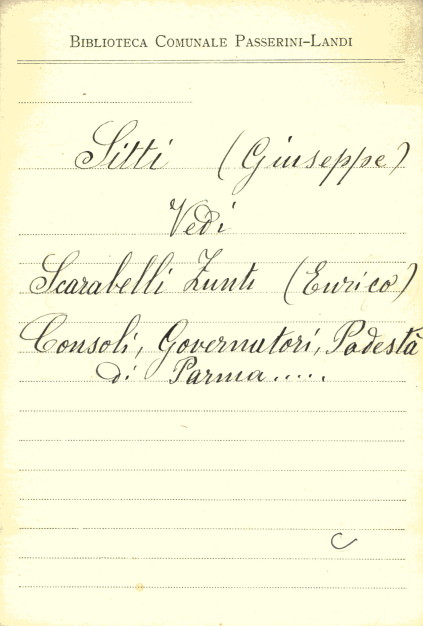 BIBLIOTECA COMUNALE PASSERINI-LANDI
Sitti (Giuseppe)
Vedi
Scarabelli Zunti (Enrico)
Consoli, Governatori, Podestà
di Parma.....